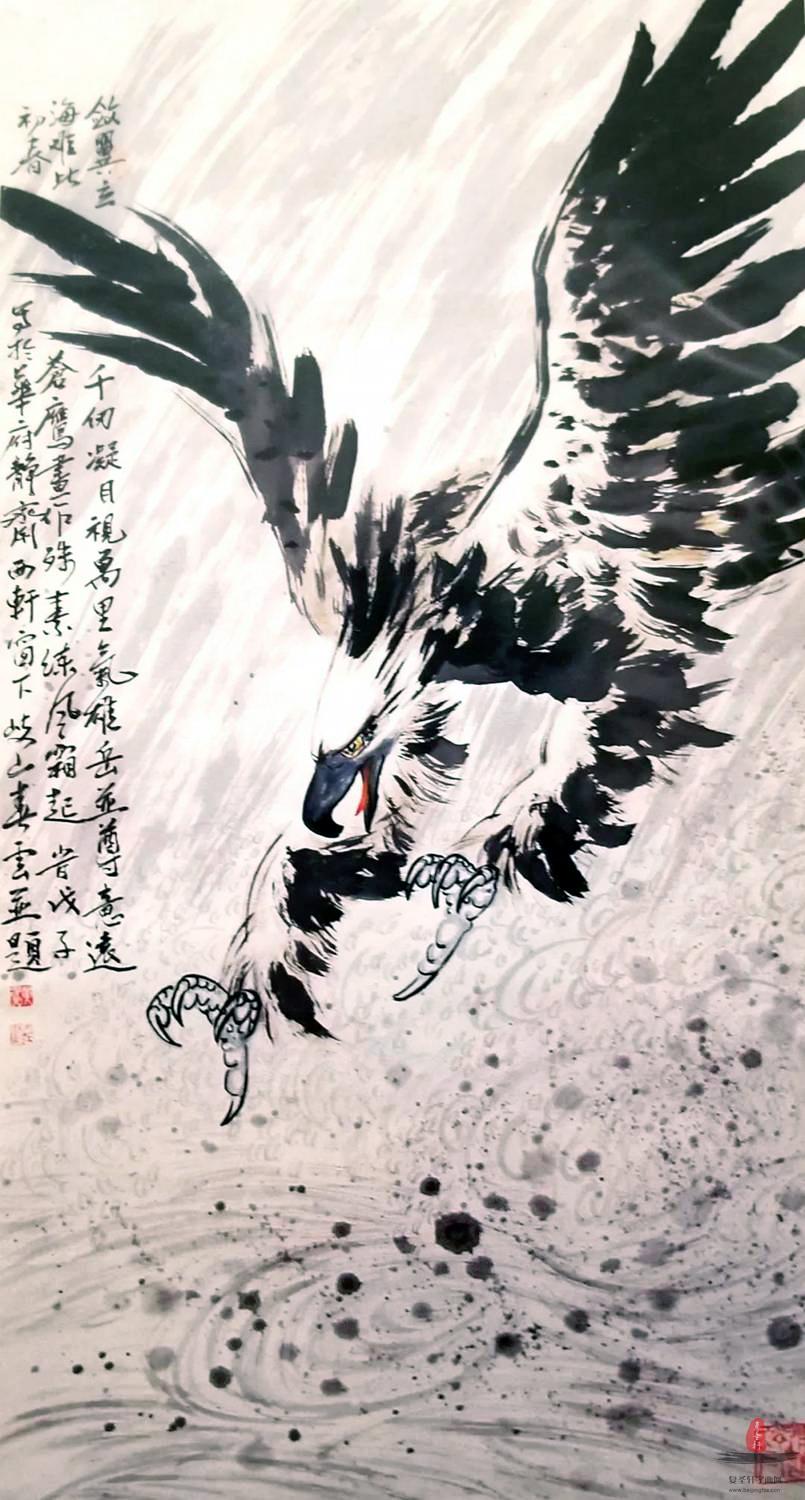 斂翼立千仞凝目視萬里氣雄岳並尊意遠
海難比蒼鷹畫作殊素練風霜起旹戊子
初春寫於華府靜齋西軒窗下岵山春雲並題